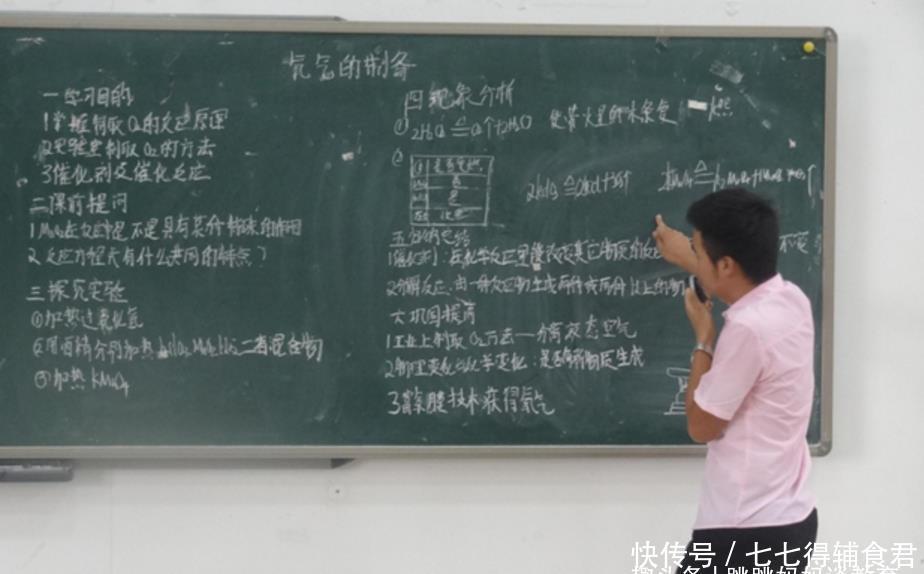 氧气的制备
一 学习目的
1掌握制取O₂的反应原理
2实验室制取O₂的方法
3催化剂及催化反应
二课前提问
1 MnO₂在反应中是不是具有某种特殊的作用
2 反应方程式有什么共同的特点?
三 探究实验
①加热过氧化氢
②用酒精分别加热 二者混合物
③加热 KMnO₄
四现象分析
① 使带火星的木条复燃
②
五归纳总结
1催化剂:在化学反应里能改变其它物质的反应
2分解反应:由一种反应物生成两种或两种以上的物
六巩固提高
1工业上制取O₂方法——分离液态空气
2物理变化与化学变化:是否有新物质生成
3富氧膜技术获得氧气
快传号 / 七七得辅食君